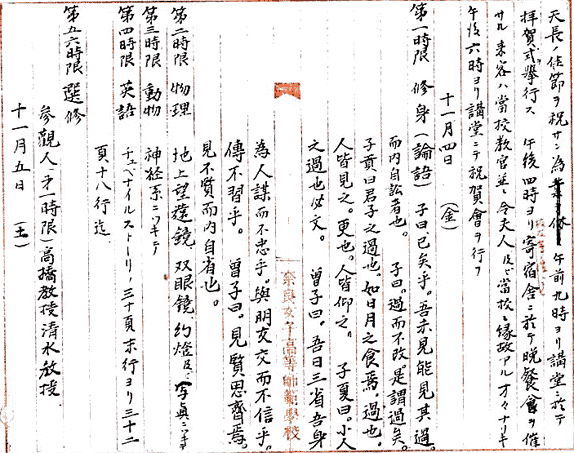 天長ノ佳節ヲ祝サン為 午前九時ヨリ講堂ニ於テ
拝賀式挙行ス 午後四時ヨリ寄宿舎ニ於テ晩餐會ヲ催
サル 来客ハ當校教官並ニ令夫人及ビ當校ニ縁故アル方々ナリキ
午後六時ヨリ講堂ニテ祝賀會ヲ行フ
十一月四日 (金)
第一時限 修身(論語) 子曰已矣乎。吾未見能見其過。
而内自訟者也。 子曰。過而不改。是謂過矣。
子貢曰君子之過也。如日月之食焉。過也。
人皆見之。更也。人皆仰之。 子夏曰。小人
之過也必文。 曾子曰。吾日三省吾身
為人謀而不忠乎。與朋友交而不信乎。
傳不習乎。 曾子曰。見賢思齊焉。
見不賢而内自省也。
奈良女子高等師範學校
第二時限 物理 地上望遠鏡 双眼鏡 幻燈及ビ写真ニツキテ
第三時限 動物 神経系ニツキテ
第四時限 英語 チュベナイルストーリー、三十頁末行ヨリ三十二
頁十八行迄
第五六時限 選修
参観人(第一時限)高橋教授 清水教授
十一月五日 (土)